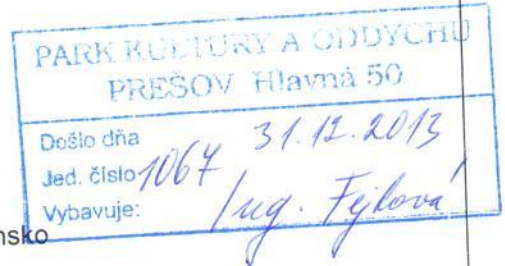 PARK KULTURY A ODDYCHU
PREŠOV Hlavná 50
Došlo dňa 31.12.2013
Jed. číslo 1067
Vybavuje: Ing. Fejková
nsko